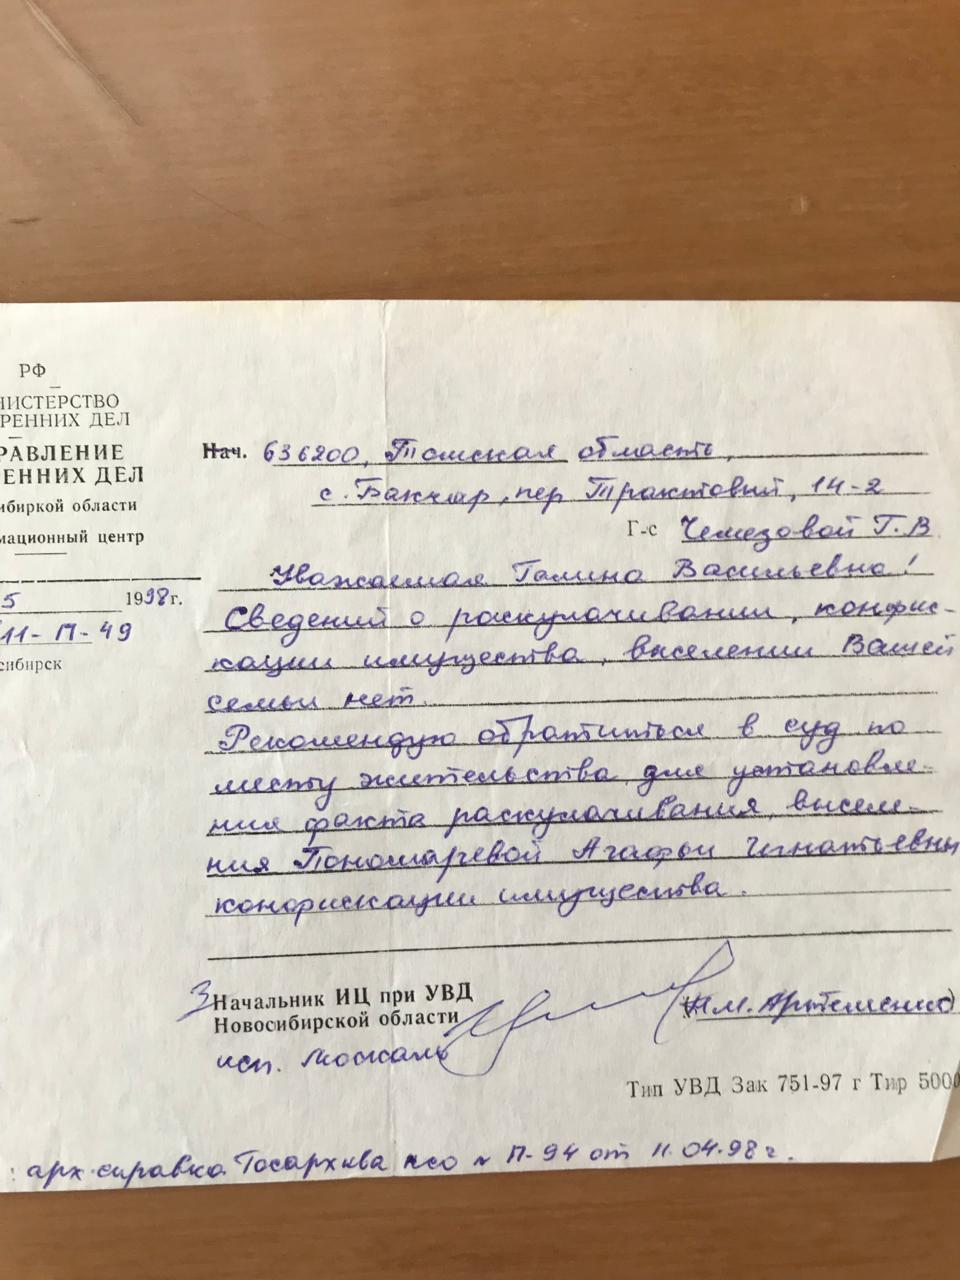 РФ
НИСТЕРСТВО
РЕННИХ ДЕЛ
РАВЛЕНИЕ
ЕННИХ ДЕЛ
ибиркой области
мационный центр
5 1998 г.
11-П-49
сибирск
Нач. 636200, Томская область,
с. Бакчар, пер Трактовый, 14-2
Г-с Чемезовой Г.В
Уважаемая Галина Васильевна!
Сведений о раскулачивании, конфис-
кации имущества, выселении Вашей
семьи нет.
Рекомендую обратиться в суд по
месту жительства для установле-
ния факта раскулачивания, выселе-
ния Пономаревой Агафьи Игнатьевны
конфискации имущества.
З Начальник ИЦ при УВД
Новосибирской области
М. Артеменко)
исп. Москаль
Тип УВД Зак 751-97 г Тир 5000
: арх.справка Госархива нсо № П-94 от 11.04.98 г.